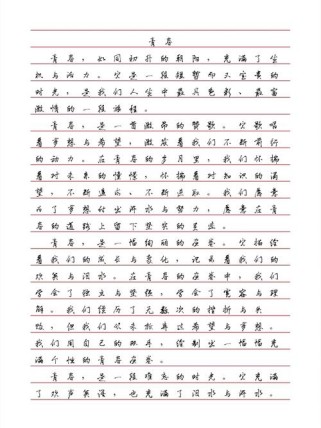 青春
青春，如同初升的朝阳，充满了生
机与活力。它是一段短暂而又宝贵的
时光，是我们人生中最具色彩、最富
激情的一段旅程。
青春，是一首激昂的赞歌。它歌唱
着梦想与希望，激发着我们不断前行
的动力。在青春的岁月里，我们怀揣
着对未来的憧憬，怀揣着对知识的渴
望，不断追求，不断进取。我们愿意
为了梦想付出汗水与努力，愿意在青
春的道路上留下坚实的足迹。
青春，是一幅绚丽的画卷。它描绘
着我们的成长与变化，记录着我们的
欢笑与泪水。在青春的画卷中，我们
学会了独立与坚强，学会了宽容与理
解。我们经历了无数次的挫折与失
败，但我们从未放弃过希望与梦想。
我们用自己的双手，绘制出一幅幅充
满个性的青春画卷。
青春，是一段难忘的时光。它充满
了欢声笑语，也充满了泪水与汗水。